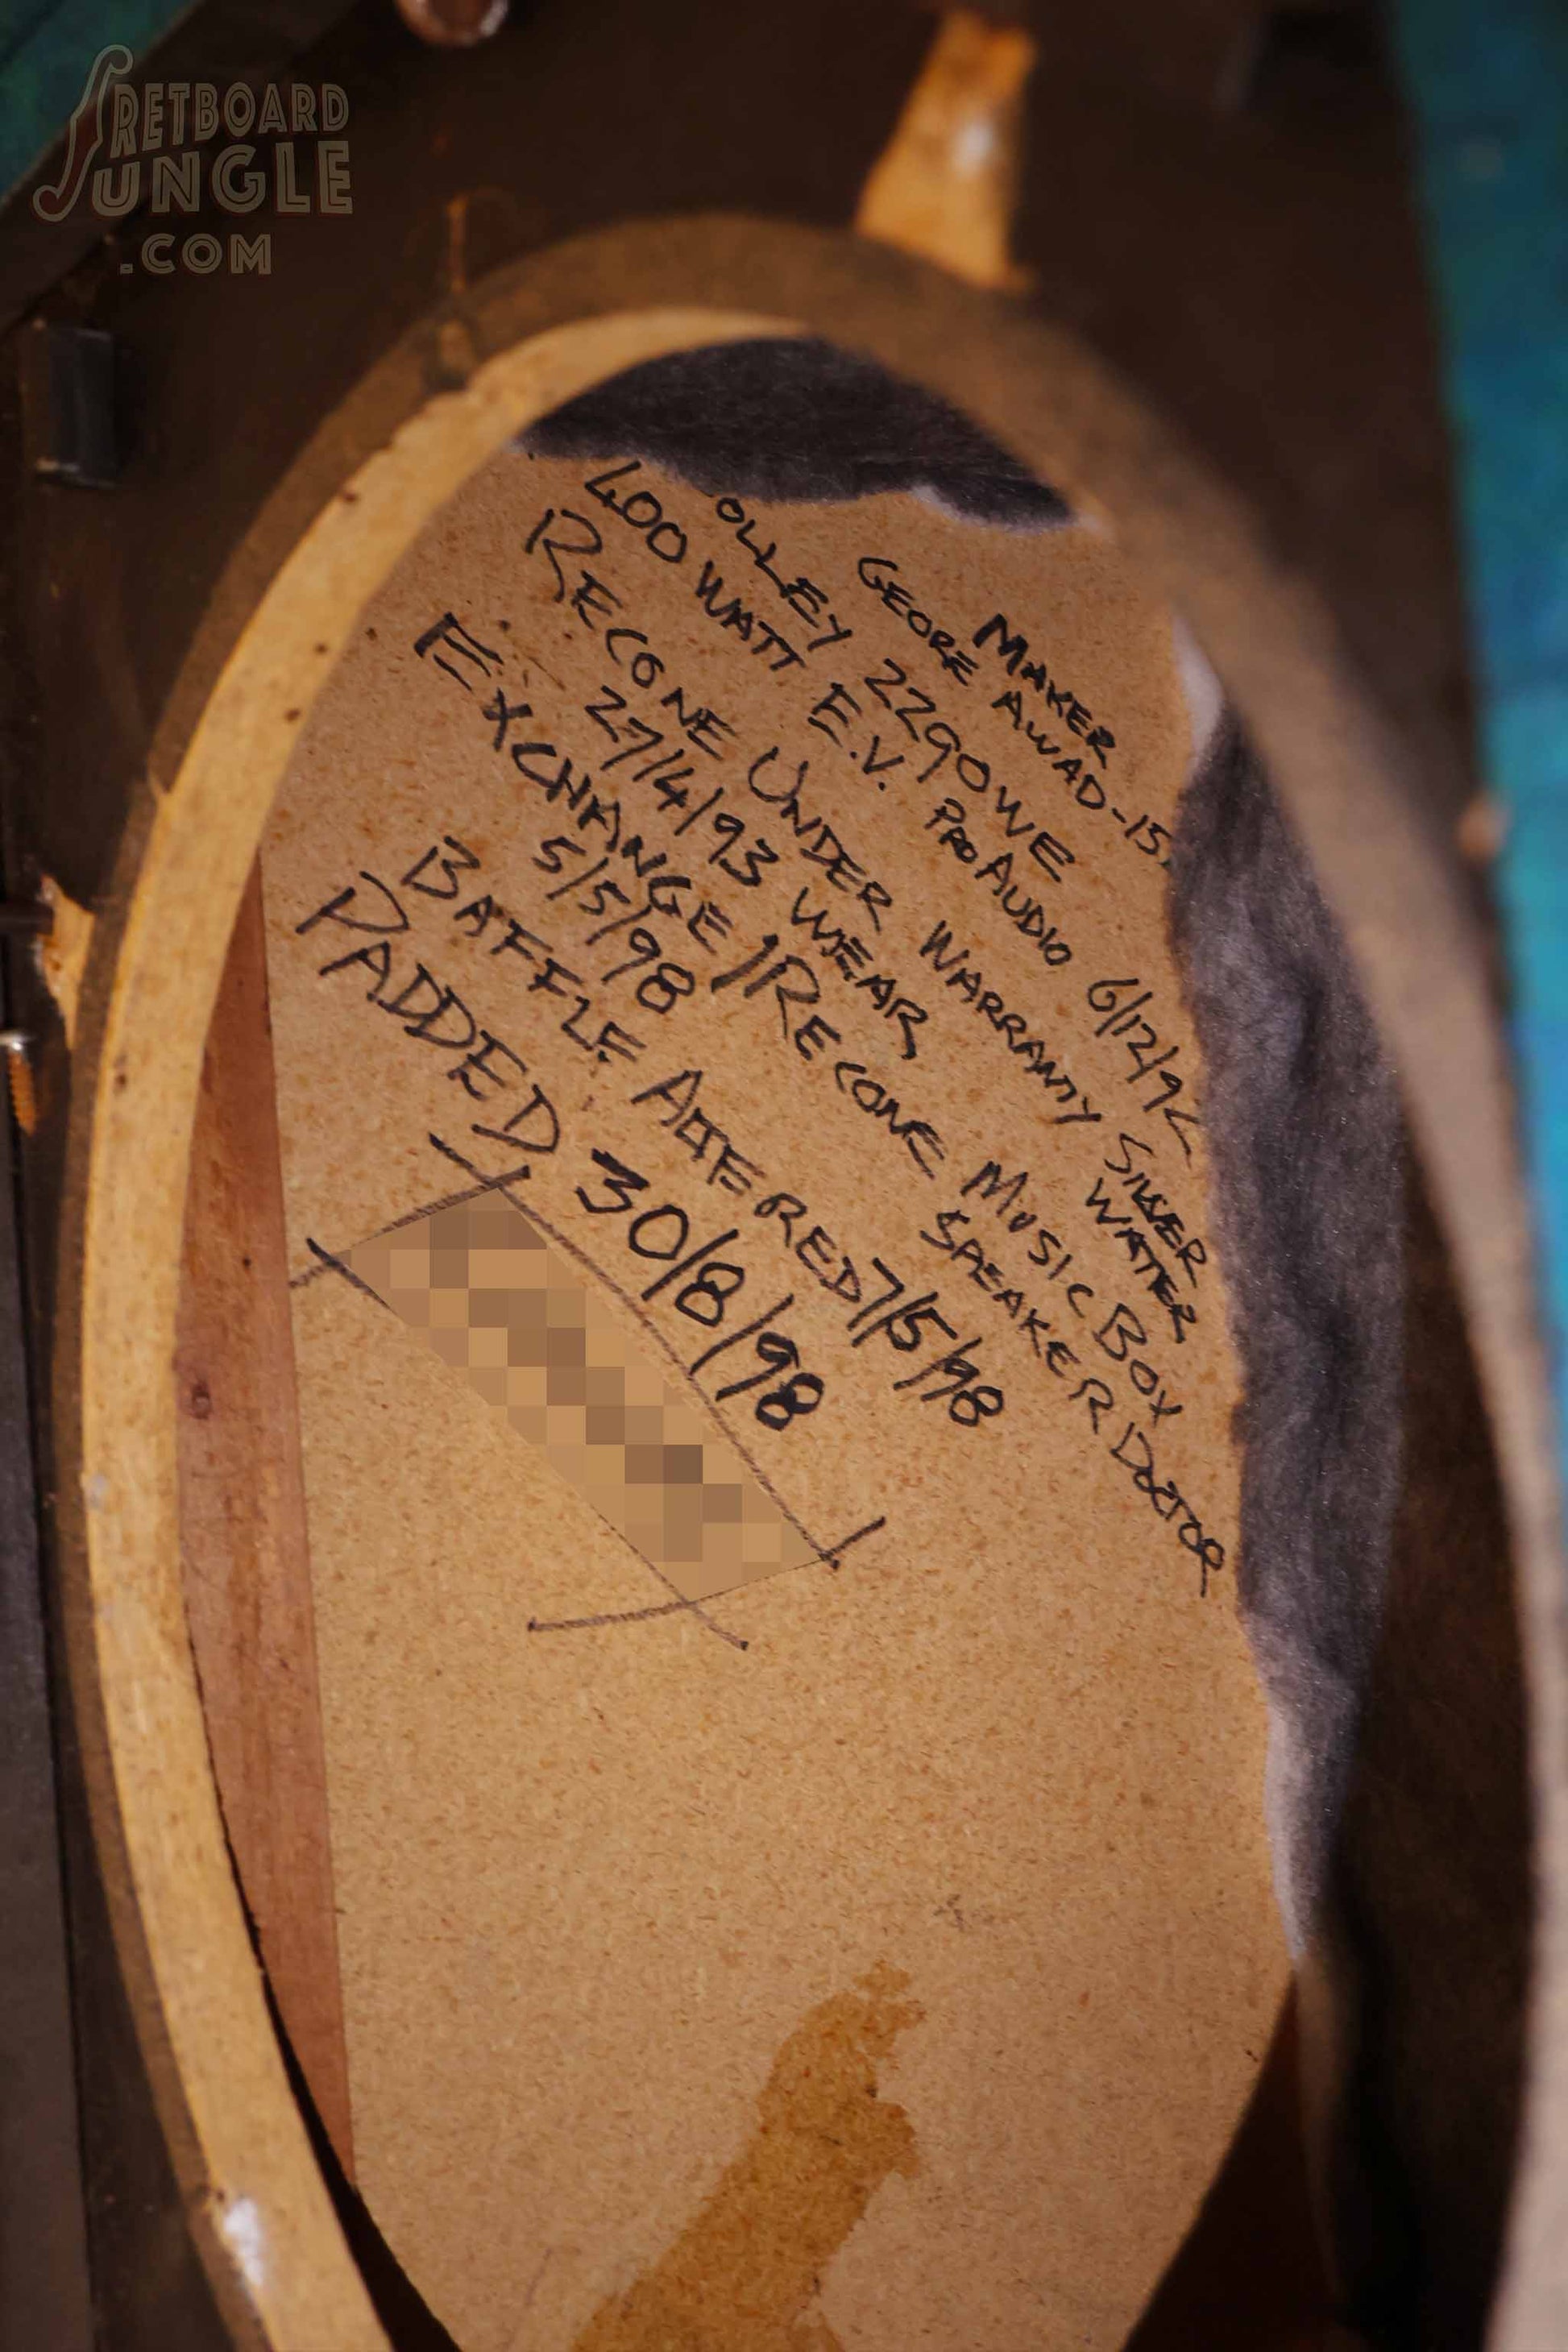 FRETBOARD
JUNGLE
.COM
MAKER
GEORE AWAD-15
OLLEY 2290WE
400 WATT E.V. PRO AUDIO 6/12/92
RECONE UNDER WARRANTY SILVER
WATER
27/4/93 WEAR
EXCHANGE/RECONE MUSIC BOX
5/5/98 SPEAKER DOCTOR
BAFFLE ALTERED 7/5/98
PADDED 30/8/98